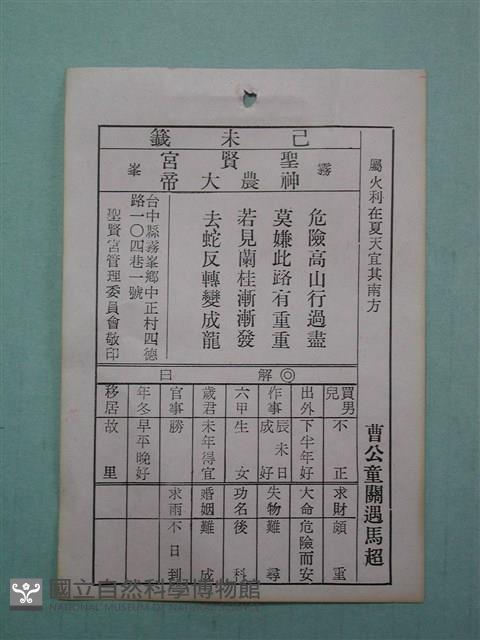 屬火利在夏天宜其南方
曹公童關遇馬超
己未籤
霧峯
聖賢宮
神農大帝
危險高山行過盡
莫嫌此路有重重
若見蘭桂漸漸發
去蛇反轉變成龍
台中縣霧峯鄉中正村四德
路一〇四巷一號
聖賢宮管理委員會敬印
◎解曰
買男兒 不正
出外 下半年好
作事 辰未日成好
六甲 生女
歲君 未年得宜
官事 勝
年冬 早平晚好
移居 故里
求財 頗重
大命 危險而安
失物 難尋
功名 後科
婚姻 難成
求雨 不日到
國立自然科學博物館
NATIONAL MUSEUM OF NATURAL SCIENCE